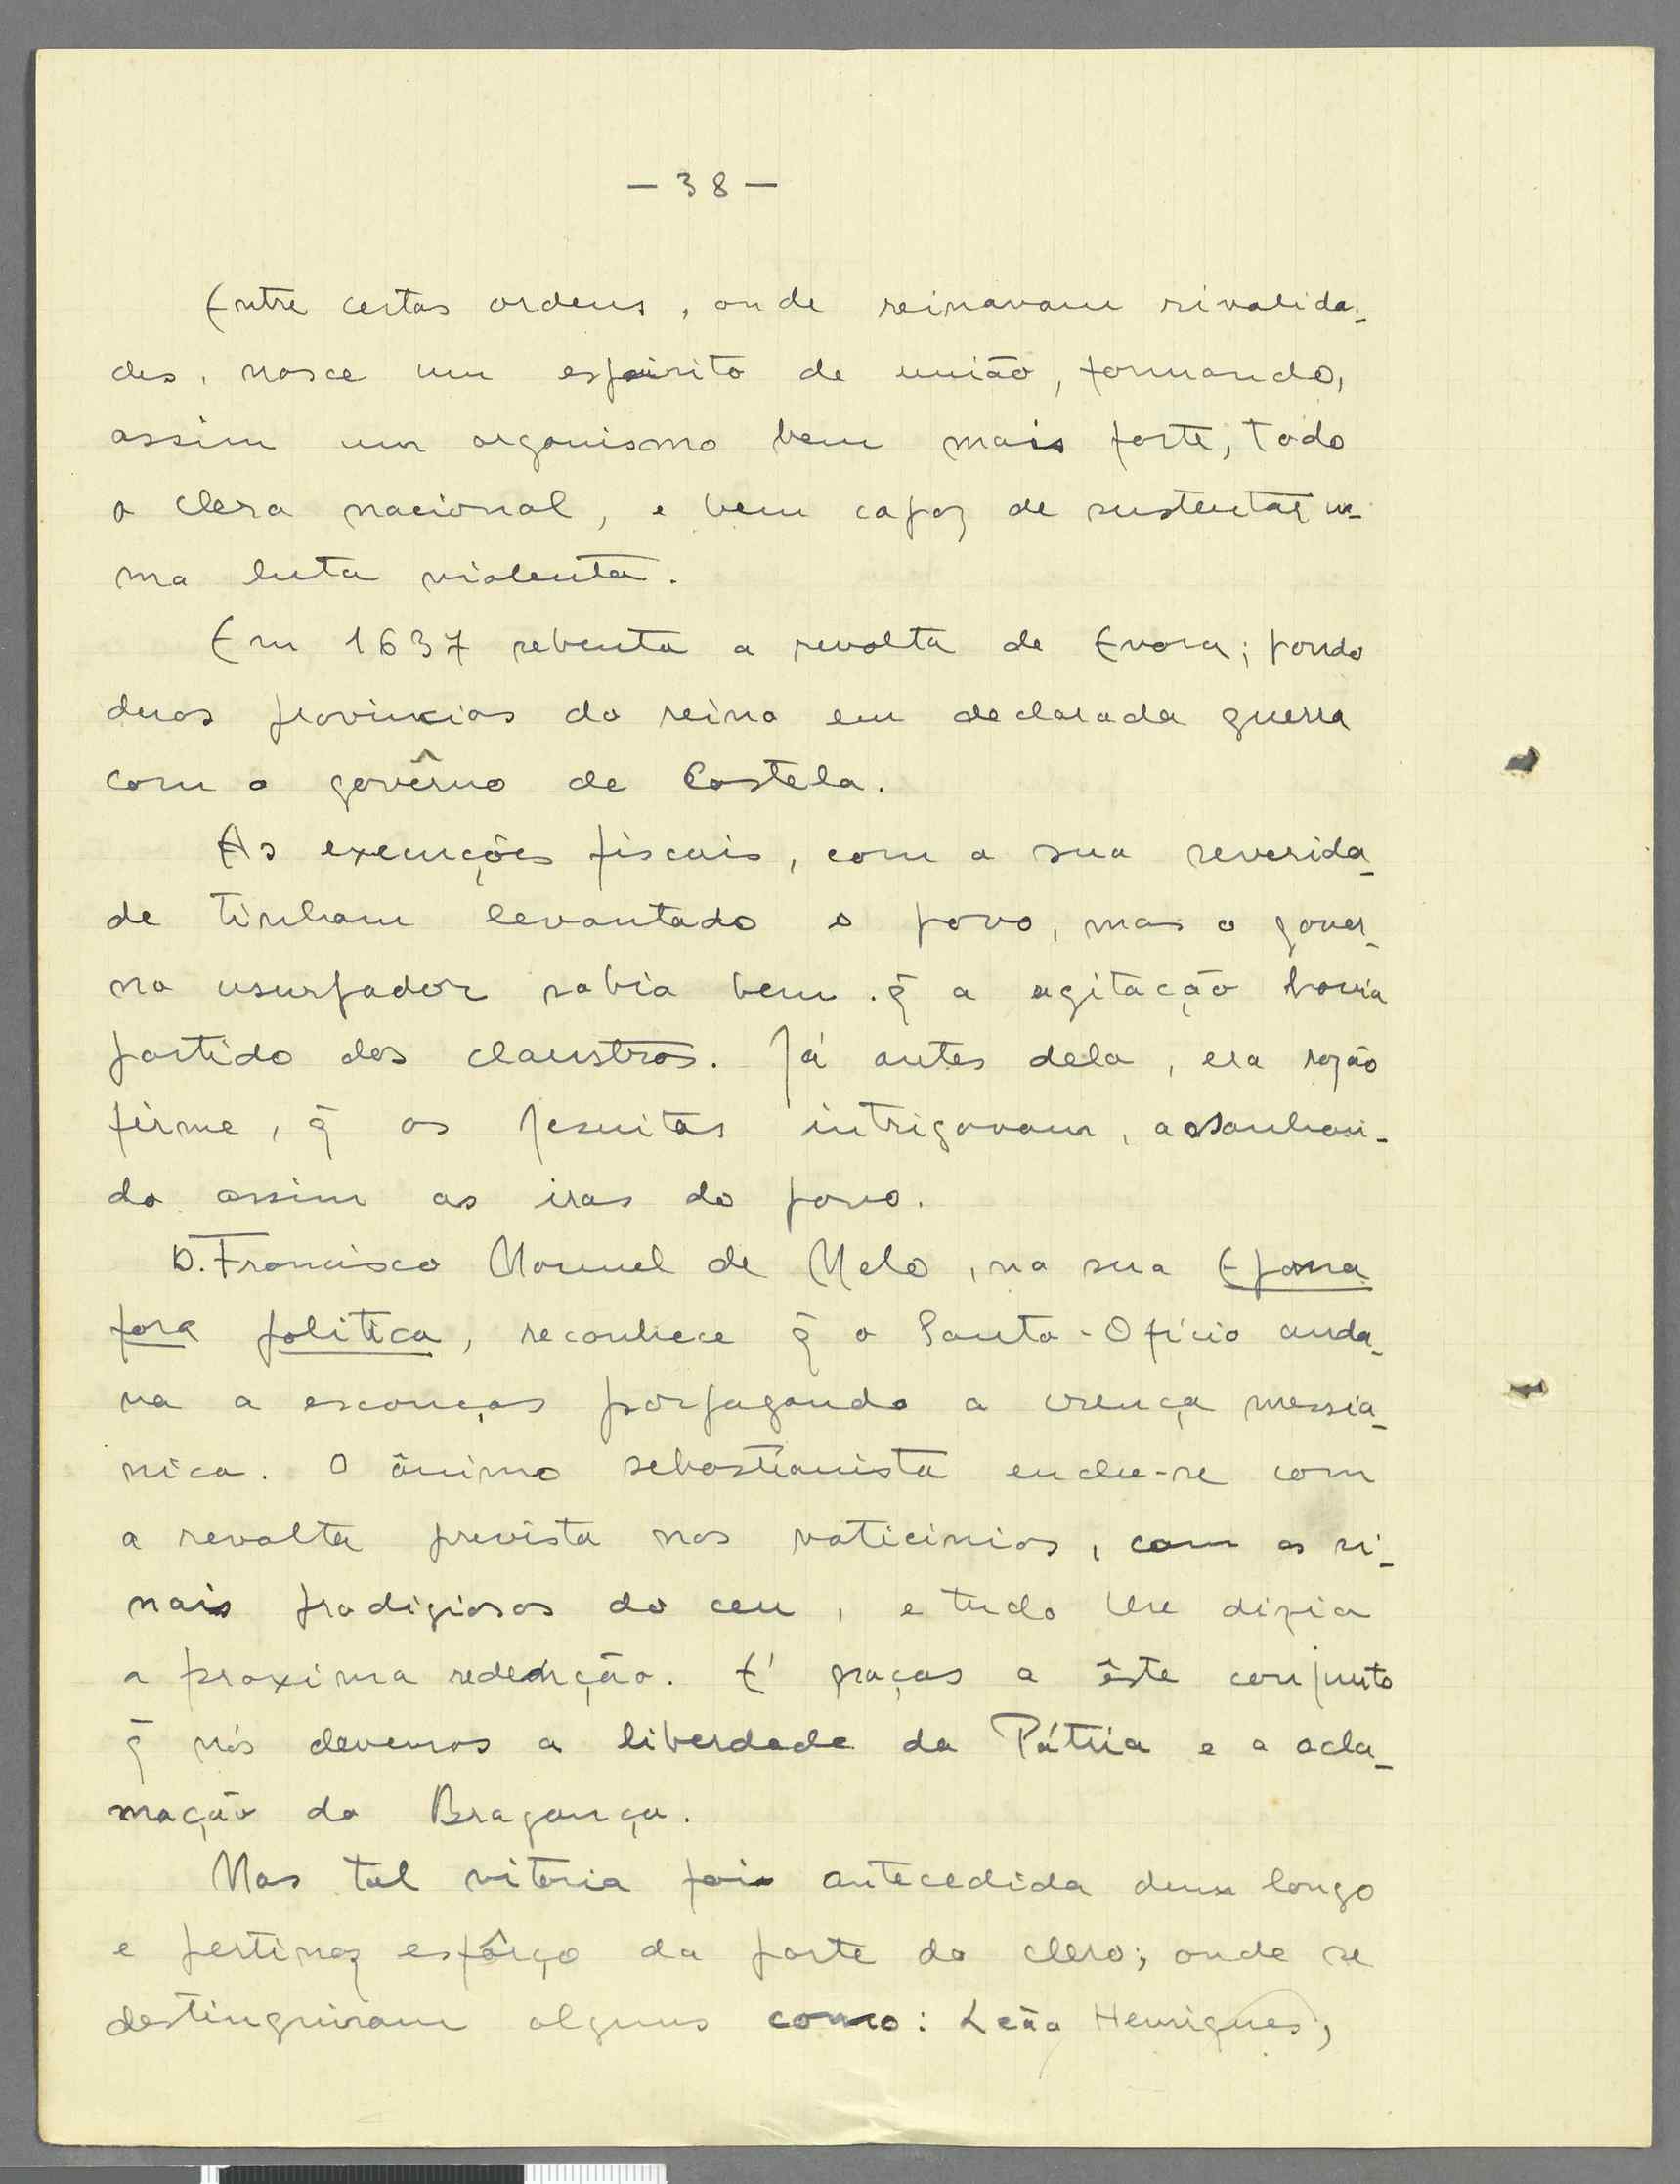 — 38 —
Entre certas ordens, onde reinavam rivalida-
des, nasce um espirito de união, formando,
assim um organismo bem mais forte, todo
o clero nacional, e bem capaz de sustentar u-
ma luta violenta.
Em 1637 rebenta a revolta de Evora; pondo
duas provincias do reino em declarada guerra
com o govêrno de Castela.
As execuções fiscais, com a sua severida-
de tinham levantado o povo, mas o gover-
no usurpador sabia bem q̃ a agitação havia
partido dos claustros. Já antes dela, era razão
firme, q̃ os Jesuitas intrigavam, assanhan-
do assim as iras do povo.
D. Francisco Manuel de Melo, na sua Epana
fora politica, reconhece q̃ o Santo-Ofício anda-
va a esconças porpagando a crença messia-
nica. O ânimo sebastianista enche-se com
a revolta prevista nos vaticinios, com os si-
nais prodigiosos do ceu, e tudo lhe dizia
a proxima redenção. E' graças a êste conjunto
q̃ nós devemos a liberdade da Pátria e a acla-
mação do Bragança.
Mas tal vitoria foi antecedida dum longo
e pertinaz esfôrço da parte do clero; onde se
destinguiram alguns como: Leão Henriques,